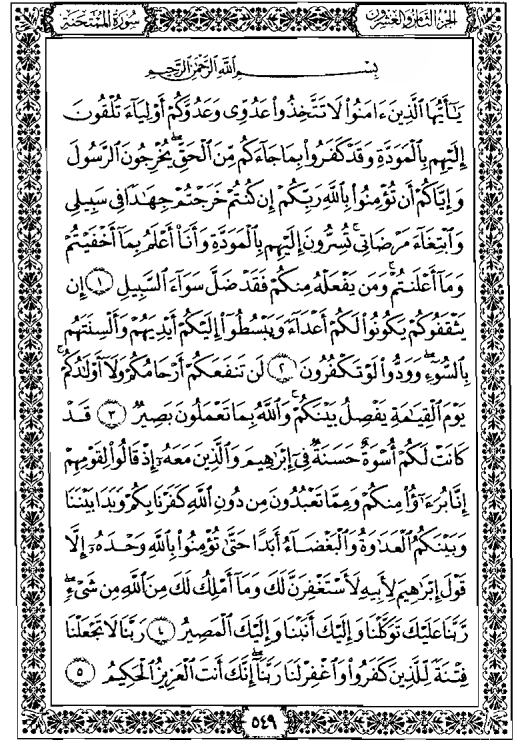 الجزء الثامن والعشرون
سورة الممتحنة
بِسْمِ اللَّهِ الرَّحْمَٰنِ الرَّحِيمِ
يَٰٓأَيُّهَا ٱلَّذِينَ ءَامَنُوا۟ لَا تَتَّخِذُوا۟ عَدُوِّى وَعَدُوَّكُمْ أَوْلِيَآءَ تُلْقُونَ
إِلَيْهِم بِٱلْمَوَدَّةِ وَقَدْ كَفَرُوا۟ بِمَا جَآءَكُم مِّنَ ٱلْحَقِّ يُخْرِجُونَ ٱلرَّسُولَ
وَإِيَّاكُمْ أَن تُؤْمِنُوا۟ بِٱللَّهِ رَبِّكُمْ إِن كُنتُمْ خَرَجْتُمْ جِهَٰدًا فِى سَبِيلِى
وَٱبْتِغَآءَ مَرْضَاتِى ۚ تُسِرُّونَ إِلَيْهِم بِٱلْمَوَدَّةِ وَأَنَا۠ أَعْلَمُ بِمَآ أَخْفَيْتُمْ
وَمَآ أَعْلَنتُمْ ۚ وَمَن يَفْعَلْهُ مِنكُمْ فَقَدْ ضَلَّ سَوَآءَ ٱلسَّبِيلِ ١ إِن
يَثْقَفُوكُمْ يَكُونُوا۟ لَكُمْ أَعْدَآءً وَيَبْسُطُوٓا۟ إِلَيْكُمْ أَيْدِيَهُمْ وَأَلْسِنَتَهُم
بِٱلسُّوٓءِ وَوَدُّوا۟ لَوْ تَكْفُرُونَ ٢ لَن تَنفَعَكُمْ أَرْحَامُكُمْ وَلَآ أَوْلَٰدُكُمْ ۚ
يَوْمَ ٱلْقِيَٰمَةِ يَفْصِلُ بَيْنَكُمْ ۚ وَٱللَّهُ بِمَا تَعْمَلُونَ بَصِيرٌ ٣ قَدْ
كَانَتْ لَكُمْ أُسْوَةٌ حَسَنَةٌ فِىٓ إِبْرَٰهِيمَ وَٱلَّذِينَ مَعَهُۥٓ إِذْ قَالُوا۟ لِقَوْمِهِمْ
إِنَّا بُرَءَٰٓؤُا۟ مِنكُمْ وَمِمَّا تَعْبُدُونَ مِن دُونِ ٱللَّهِ كَفَرْنَا بِكُمْ وَبَدَا بَيْنَنَا
وَبَيْنَكُمُ ٱلْعَدَٰوَةُ وَٱلْبَغْضَآءُ أَبَدًا حَتَّىٰ تُؤْمِنُوا۟ بِٱللَّهِ وَحْدَهُۥٓ إِلَّا
قَوْلَ إِبْرَٰهِيمَ لِأَبِيهِ لَأَسْتَغْفِرَنَّ لَكَ وَمَآ أَمْلِكُ لَكَ مِنَ ٱللَّهِ مِن شَىْءٍ ۖ
رَّبَّنَا عَلَيْكَ تَوَكَّلْنَا وَإِلَيْكَ أَنَبْنَا وَإِلَيْكَ ٱلْمَصِيرُ ٤ رَبَّنَا لَا تَجْعَلْنَا
فِتْنَةً لِّلَّذِينَ كَفَرُوا۟ وَٱغْفِرْ لَنَا رَبَّنَآ ۖ إِنَّكَ أَنتَ ٱلْعَزِيزُ ٱلْحَكِيمُ ٥
٥٤٩